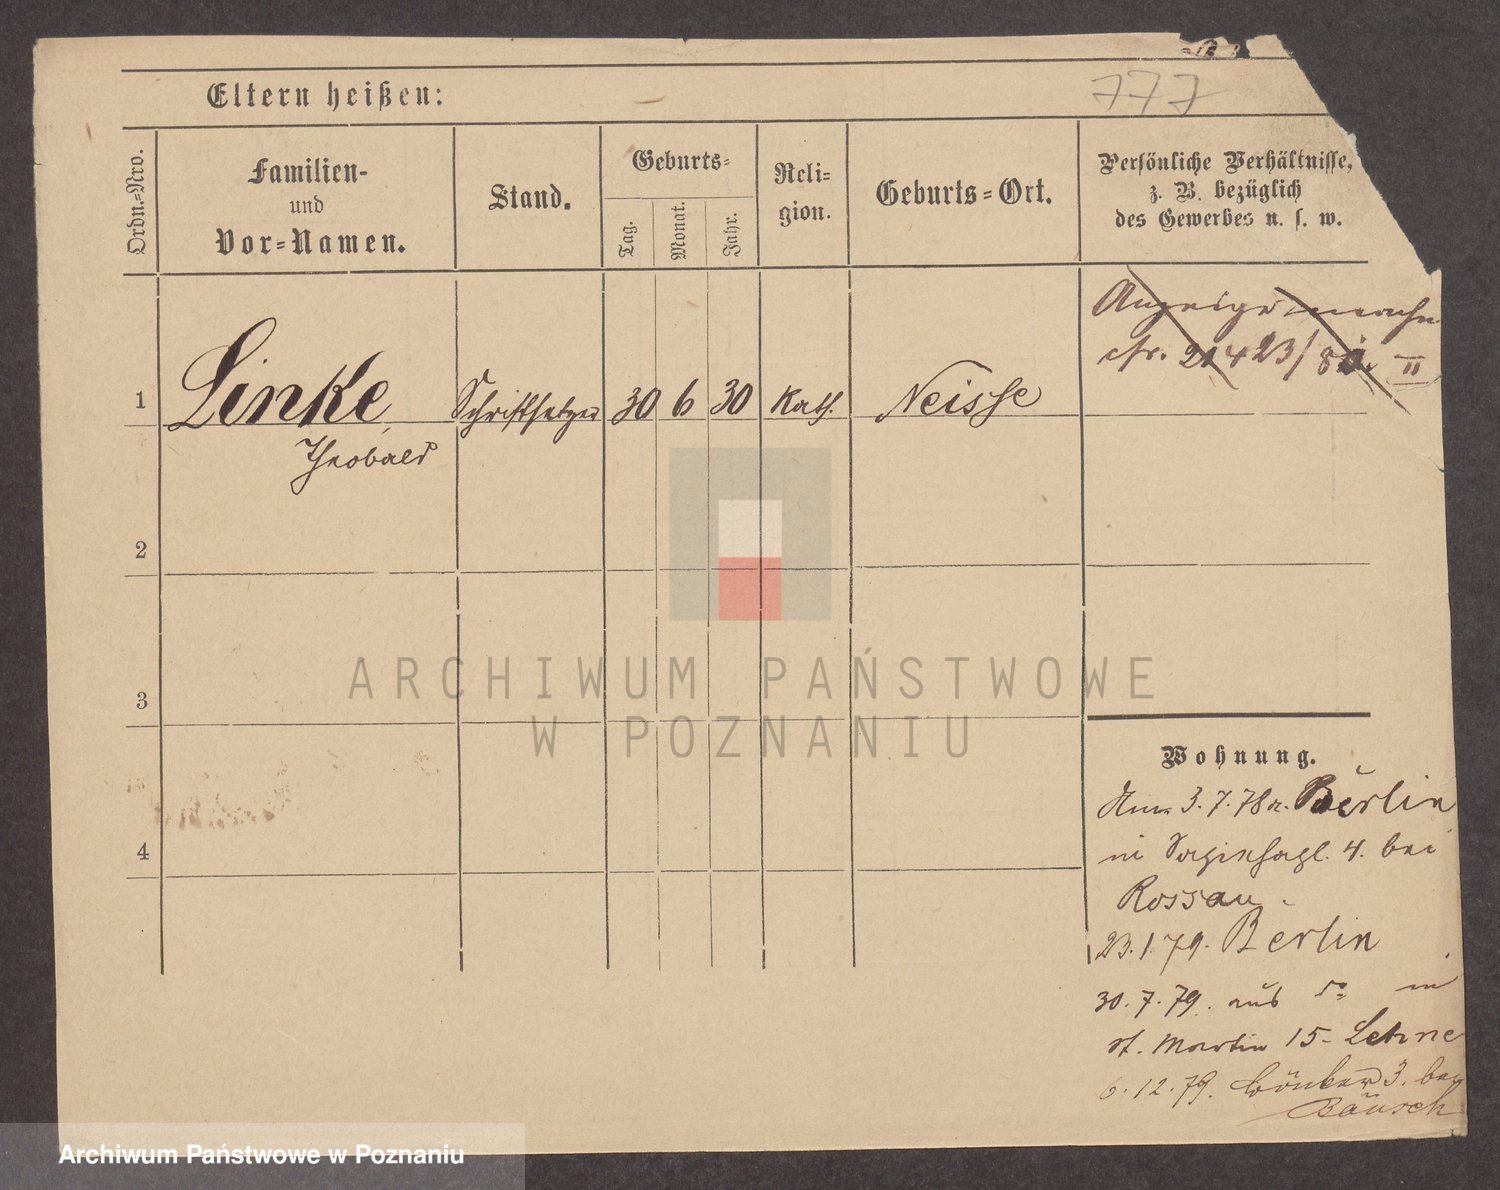 777
Eltern heißen:
Ordn.-Nro.
Familien-
und
Vor-Namen.
Stand.
Geburts-
Tag.
Monat.
Jahr.
Reli-
gion.
Geburts-Ort.
Persönliche Verhältnisse,
z. B. bezüglich
des Gewerbes u. s. w.
Anzeige
cfr. II
1 Linke Schriftsetzer 30 6 30 Kath. Neisse
Theobald
2
3
4
Wohnung.
3.7.78 Berlin
4. bei
Rossau
23.1.79. Berlin
30.7.79. aus do in
st. Martin 15 - Lehne
6.12.79. 3. bei
Bäusch
ARCHIWUM PAŃSTWOWE
W POZNANIU
Archiwum Państwowe w Poznaniu